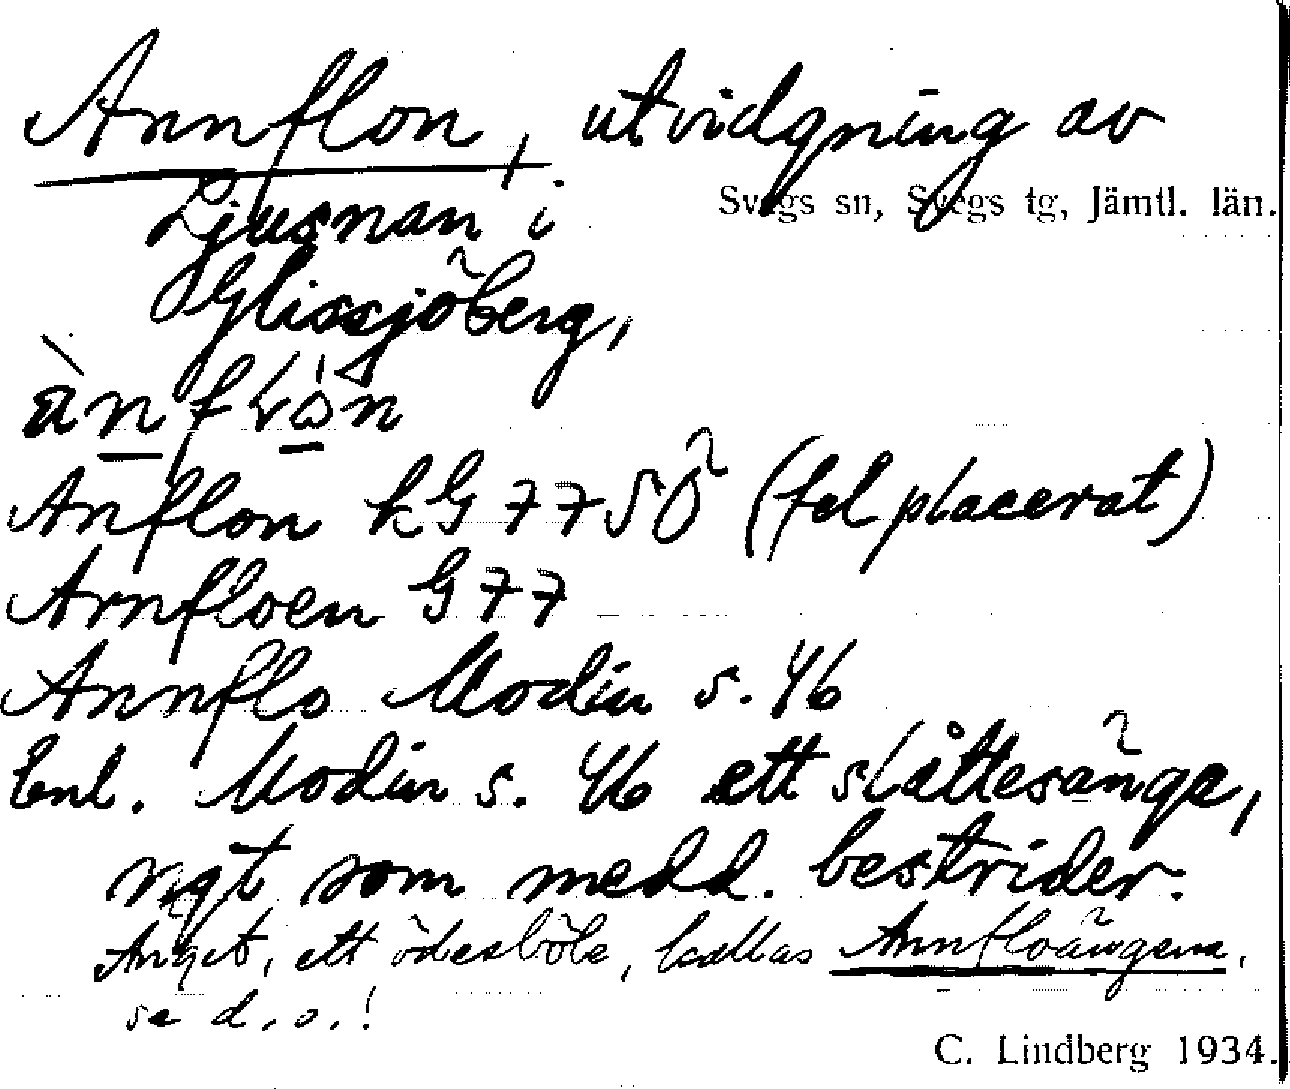 Annflon, utvidgning av
Svegs sn, Svegs tg, Jämtl. län.
Ljusnan i
Glissjöberg,
Anflon kG 77 SÖ (fel placerat)
Arnfloen G 77
Annflo Modin s. 46
Enl. Modin s. 46 ett slåttesänge,
ngt som medd. bestrider.
Änget, ett ödesböle, kallas Annfloängena,
se d.o.!
C. Lindberg 1934.